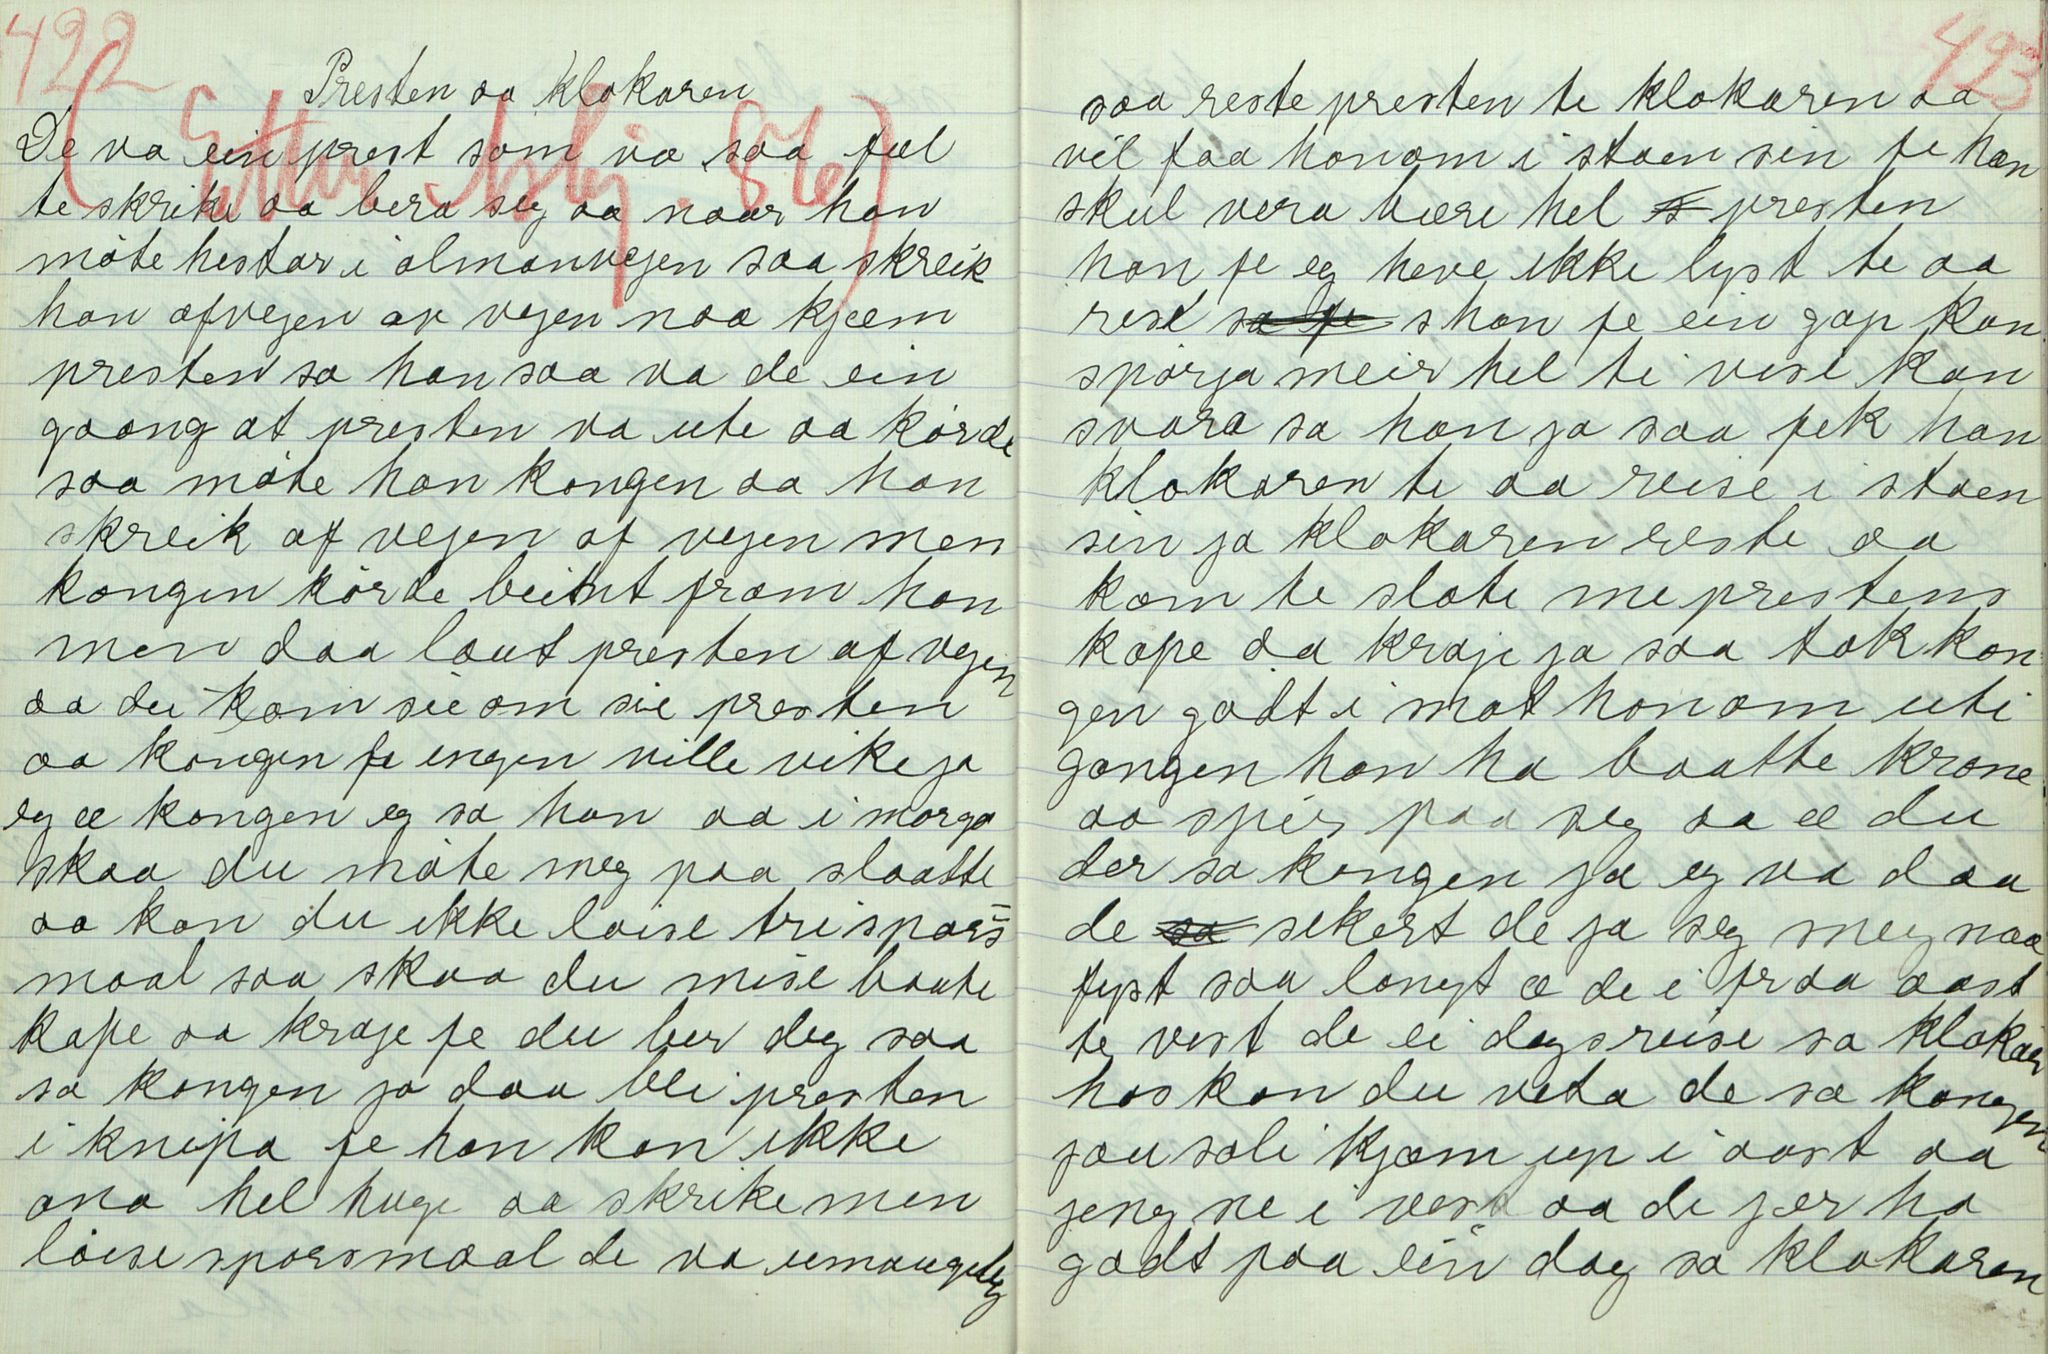 422
Presten aa klokaren
(Ettur. bly. 816)
De va ein prest som va saa fæl
te skrike aa bera seg aa naar han
møte hestar i almanvegen saa skreik
han afvegen av vegen naa kjæm
presten sa han saa va de ein
gaang at presten va ute aa kørde
saa møte han kongen aa han
skreik af vegen af vegen men
kongen kørde beint fram han
men daa laut presten af vegen
aa du kom sie om sie presten
aa kongen fe engen ville vike ja
eg æ kongen eg sa han aa i morga
skaa du møte meg paa slaatte
aa kan du ikke løise tri spørs
maal saa skaa du mise baate
kape aa krage fe du ber deg saa
sa kongen ja daa blei presten
i knipa fe han kan ikke
ana hel huge aa skrike men
løise sporsmaal de va umaugeleg
423
saa reste presten te klokaren aa
vil faa honom i staen sin fe han
skul vera bære hel presten
han fe eg heve ikke lyst te aa
rese s han fe ein gap kan
spørja meir hel ti vise kan
svara sa han ja saa fek han
klokaren te aa reise i staen
sin ja klokaren reste aa
kom te slote me prestens
kape aa kraje ja saa tok kon
gen gødt i mot honom uti
gangen han ha baatte krone
aa spir paa seg aa æ du
der sa kongen ja eg va daa
de sekert de ja seg meg naa
fyst saa langt æ de i fraa aast
te vest de ei dagsreise sa klokaren
hos kan du veta de sa kongen
jau soli kjæm up i aast aa
jeng ne i vest aa de jær ho
godt paa ein dag sa klokaren